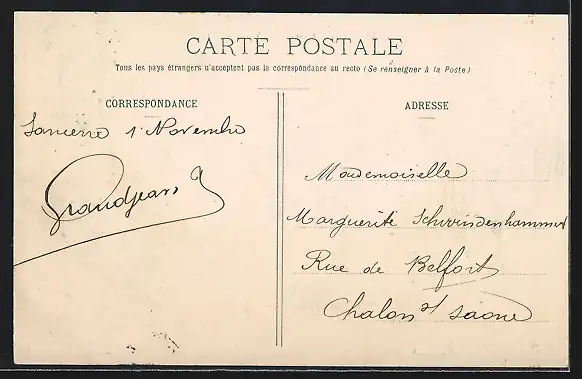 CARTE POSTALE
Tous les pays étrangers n'acceptent pas la correspondance au recto (Se renseigner à la Poste)
CORRESPONDANCE
Sancerre 1 Novembre
Grandjean
ADRESSE
Mademoiselle
Marguerite Schwindenhammer
Rue de Belfort
Chalon s/ Saone